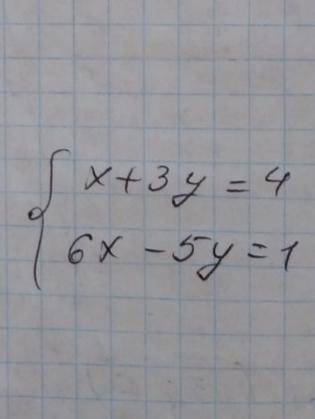 x+3y=4
6x-5y=1